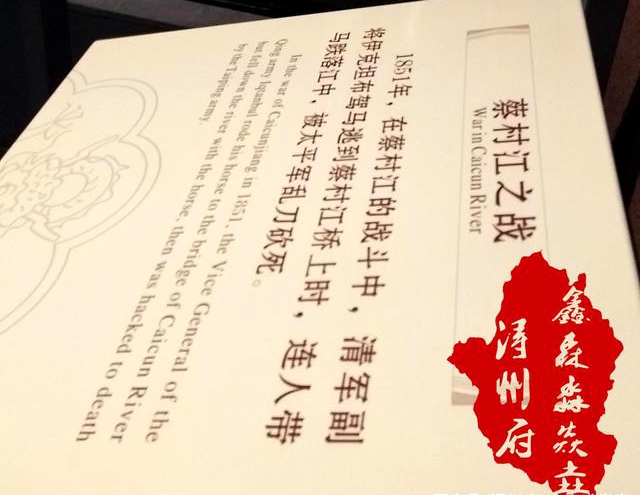 蔡村江之战
War in Caicun River
1851年，在蔡村江的战斗中，清军副
将伊克坦布驾马逃到蔡村江桥上时，连人带
马跌落江中，被太平军乱刀砍死。
In the war of Caicunjiang in 1851, the Vice General of the
Qing army Iqtanbul rode his horse to the bridge of Caicun River
but fell down the river with the horse, then was hacked to death
by the Taiping army.
鑫森淼焱垚
浔州府